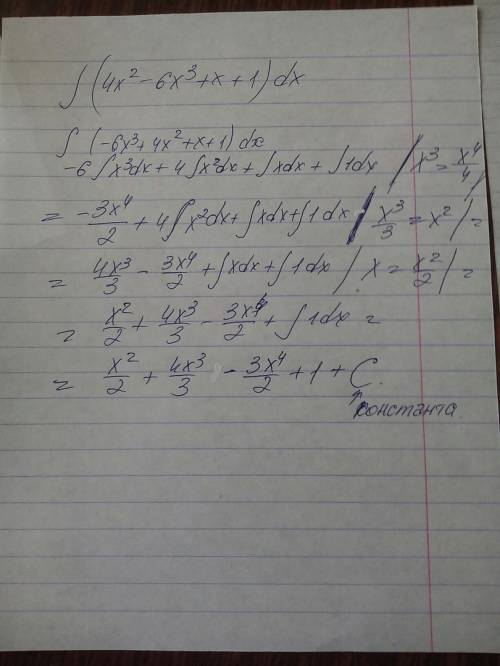 ∫(4x² - 6x³ + x + 1)dx
∫ (-6x³ + 4x² + x + 1) dx
-6∫x³dx + 4∫x²dx + ∫xdx + ∫1dx / x³ = x⁴/4 /
= -3x⁴/2 + 4∫x²dx + ∫xdx + ∫1dx / x³/3 = x² / =
= 4x³/3 - 3x⁴/2 + ∫xdx + ∫1dx / x = x²/2 / =
= x²/2 + 4x³/3 - 3x⁴/2 + ∫1dx =
= x²/2 + 4x³/3 - 3x⁴/2 + 1 + C.
константа.